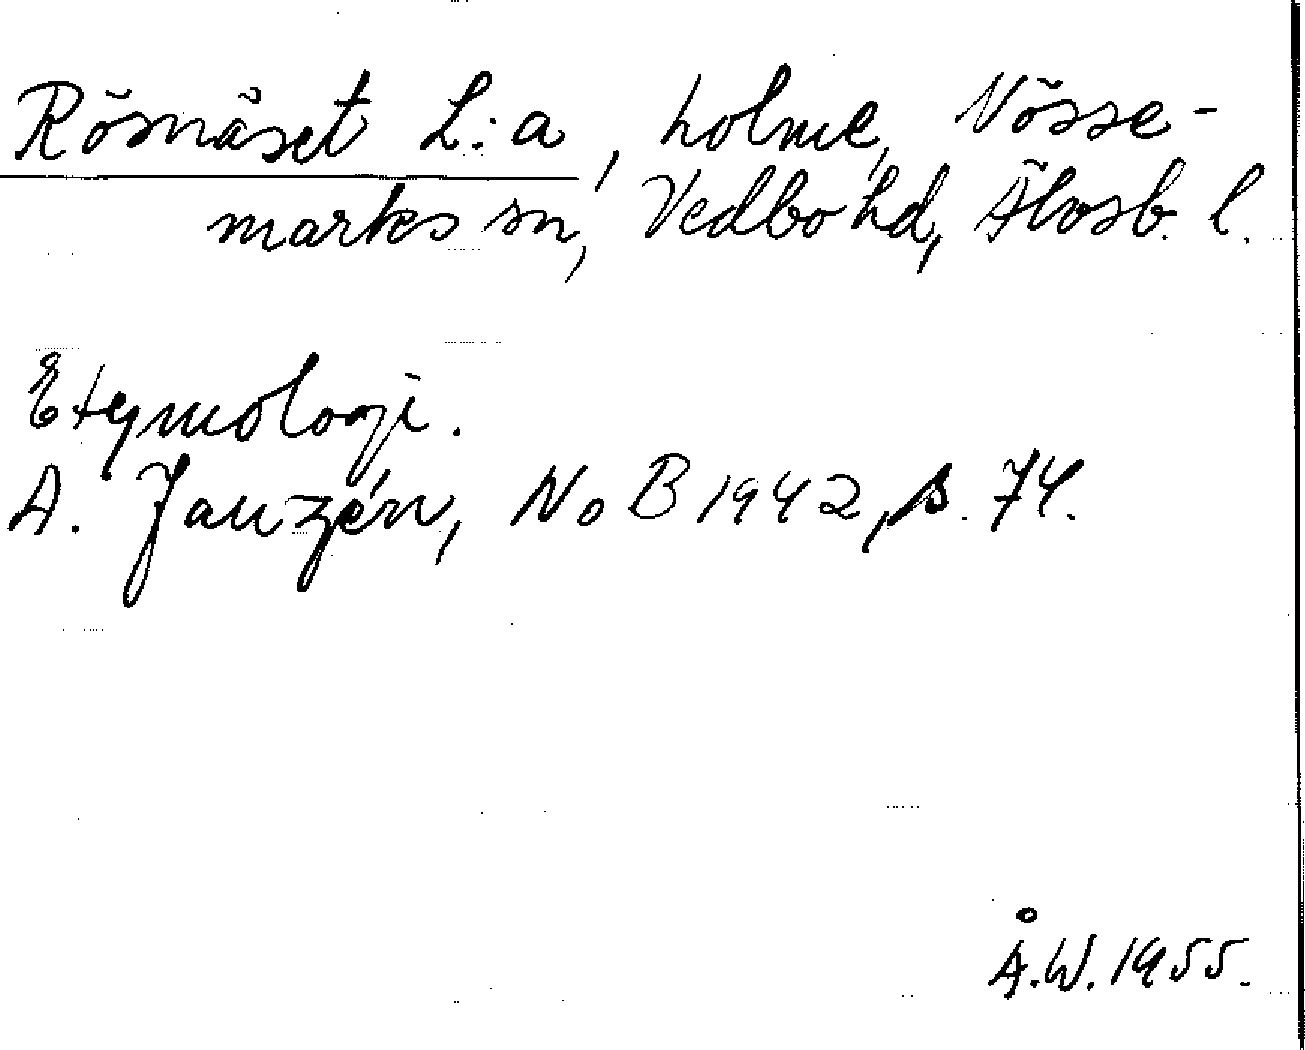 Rösnäset L:a, holme, Nösse-
marks sn, Vedbo hd, Älvsb. l.
Etymologi.
A. Janzén, NoB 1942, s. 74.
Å.W. 1955.